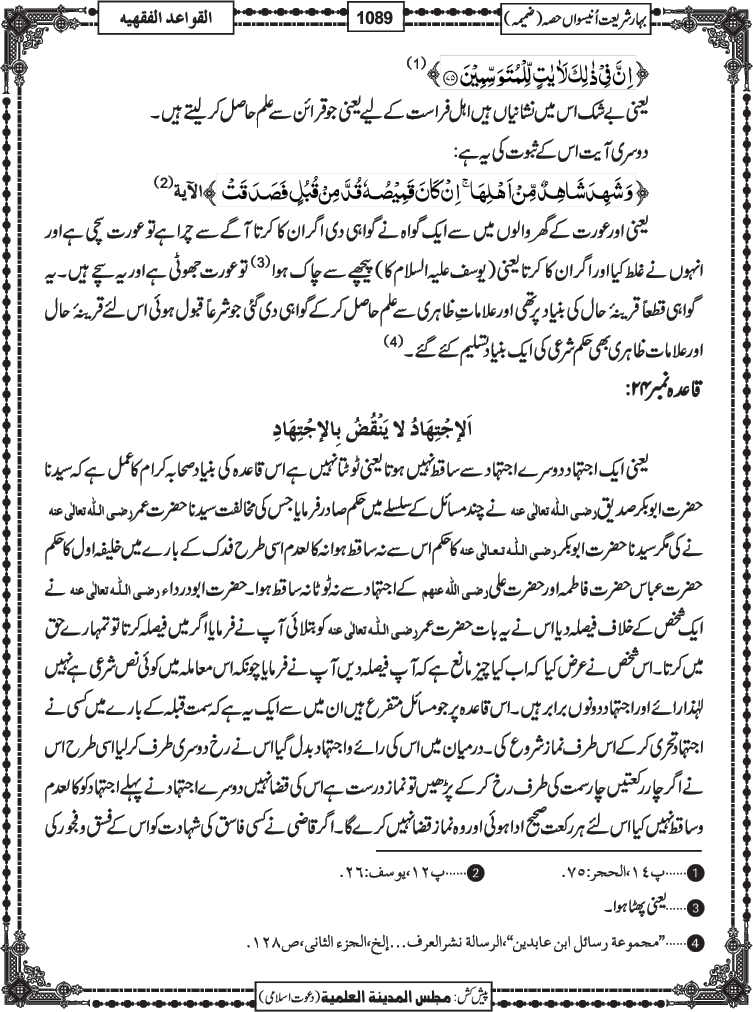 بہارِشریعت اُنیسواں حصہ (ضمیمہ)
1089
القواعد الفقهیه
﴿اِنَّ فِیْ ذٰلِكَ لَاٰیٰتٍ لِّلْمُتَوَسِّمِیْنَ ۝۷۵﴾ (1)
یعنی بے شک اس میں نشانیاں ہیں اہل فراست کے لیے یعنی جو قرائن سے علم حاصل کر لیتے ہیں۔
دوسری آیت اس کے ثبوت کی یہ ہے:
﴿وَ شَهِدَ شَاهِدٌ مِّنْ اَهْلِهَاۚ اِنْ كَانَ قَمِیْصُهٗ قُدَّ مِنْ قُبُلٍ فَصَدَقَتْ﴾ الآیة (2)
یعنی اور عورت کے گھر والوں میں سے ایک گواہ نے گواہی دی اگر ان کا کرتا آگے سے چرا ہے تو عورت سچی ہے اور
انہوں نے غلط کیا اور اگر ان کا کرتا یعنی (یوسف علیہ السلام کا) پیچھے سے چاک ہوا (3) تو عورت جھوٹی ہے اور یہ سچے ہیں۔ یہ
گواہی قطعاً قرینۂ حال کی بنیاد پر تھی اور علامات ظاہری سے علم حاصل کر کے گواہی دی گئی جو شرعاً قبول ہوئی اس لئے قرینۂ حال
اور علامات ظاہری بھی حکم شرعی کی ایک بنیاد تسلیم کئے گئے۔ (4)
قاعدہ نمبر۲۴:
اَلاِجْتِهَادُ لا یَنْقُضُ بِالاِجْتِهَادِ
یعنی ایک اجتہاد دوسرے اجتہاد سے ساقط نہیں ہوتا یعنی ٹوٹتا نہیں ہے اس قاعدہ کی بنیاد صحابہ کرام کا عمل ہے کہ سیدنا
حضرت ابوبکر صدیق رضی اللہ تعالٰی عنہ نے چند مسائل کے سلسلے میں حکم صادر فرمایا جس کی مخالفت سیدنا حضرت عمر رضی اللہ تعالٰی عنہ
نے کی مگر سیدنا حضرت ابوبکر رضی اللہ تعالٰی عنہ کا حکم اس سے نہ ساقط ہوا نہ کالعدم اسی طرح فدک کے بارے میں خلیفہ اول کا حکم
حضرت عباس حضرت فاطمہ اور حضرت علی رضی اللہ عنہم کے اجتہاد سے نہ ٹوٹا نہ ساقط ہوا۔ حضرت ابو درداء رضی اللہ تعالٰی عنہ نے
ایک شخص کے خلاف فیصلہ دیا اس نے یہ بات حضرت عمر رضی اللہ تعالٰی عنہ کو بتلائی آپ نے فرمایا اگر میں فیصلہ کرتا تو تمہارے حق
میں کرتا۔ اس شخص نے عرض کیا کہ اب کیا چیز مانع ہے کہ آپ فیصلہ دیں آپ نے فرمایا چونکہ اس معاملہ میں کوئی نص شرعی ہے نہیں
لہٰذا رائے اور اجتہاد دونوں برابر ہیں۔ اس قاعدہ پر جو مسائل متفرع ہیں ان میں سے ایک یہ ہے کہ سمت قبلہ کے بارے میں کسی نے
اجتہاد تحری کر کے اس طرف نماز شروع کی۔ درمیان میں اس کی رائے و اجتہاد بدل گیا اس نے رخ دوسری طرف کر لیا اسی طرح اس
نے اگر چار رکعتیں چار سمت کی طرف رخ کر کے پڑھیں تو نماز درست ہے اس کی قضا نہیں دوسرے اجتہاد نے پہلے اجتہاد کو کالعدم
و ساقط نہیں کیا اس لئے ہر رکعت صحیح ادا ہوئی اور وہ نماز قضا نہیں کرے گا۔ اگر قاضی نے کسی فاسق کی شہادت کو اس کے فسق و فجور کی
1 ......پ١٤،الحجر:٧٥.
2 ......پ١٢،یوسف:٢٦.
3 ......یعنی پھٹا ہوا۔
4 ......”مجموعة رسائل ابن عابدین“،الرسالة نشرالعرف...إلخ،الجزء الثانی،ص١٢٨.
پیش کش: مجلس المدینة العلمیة (دعوت اسلامی)